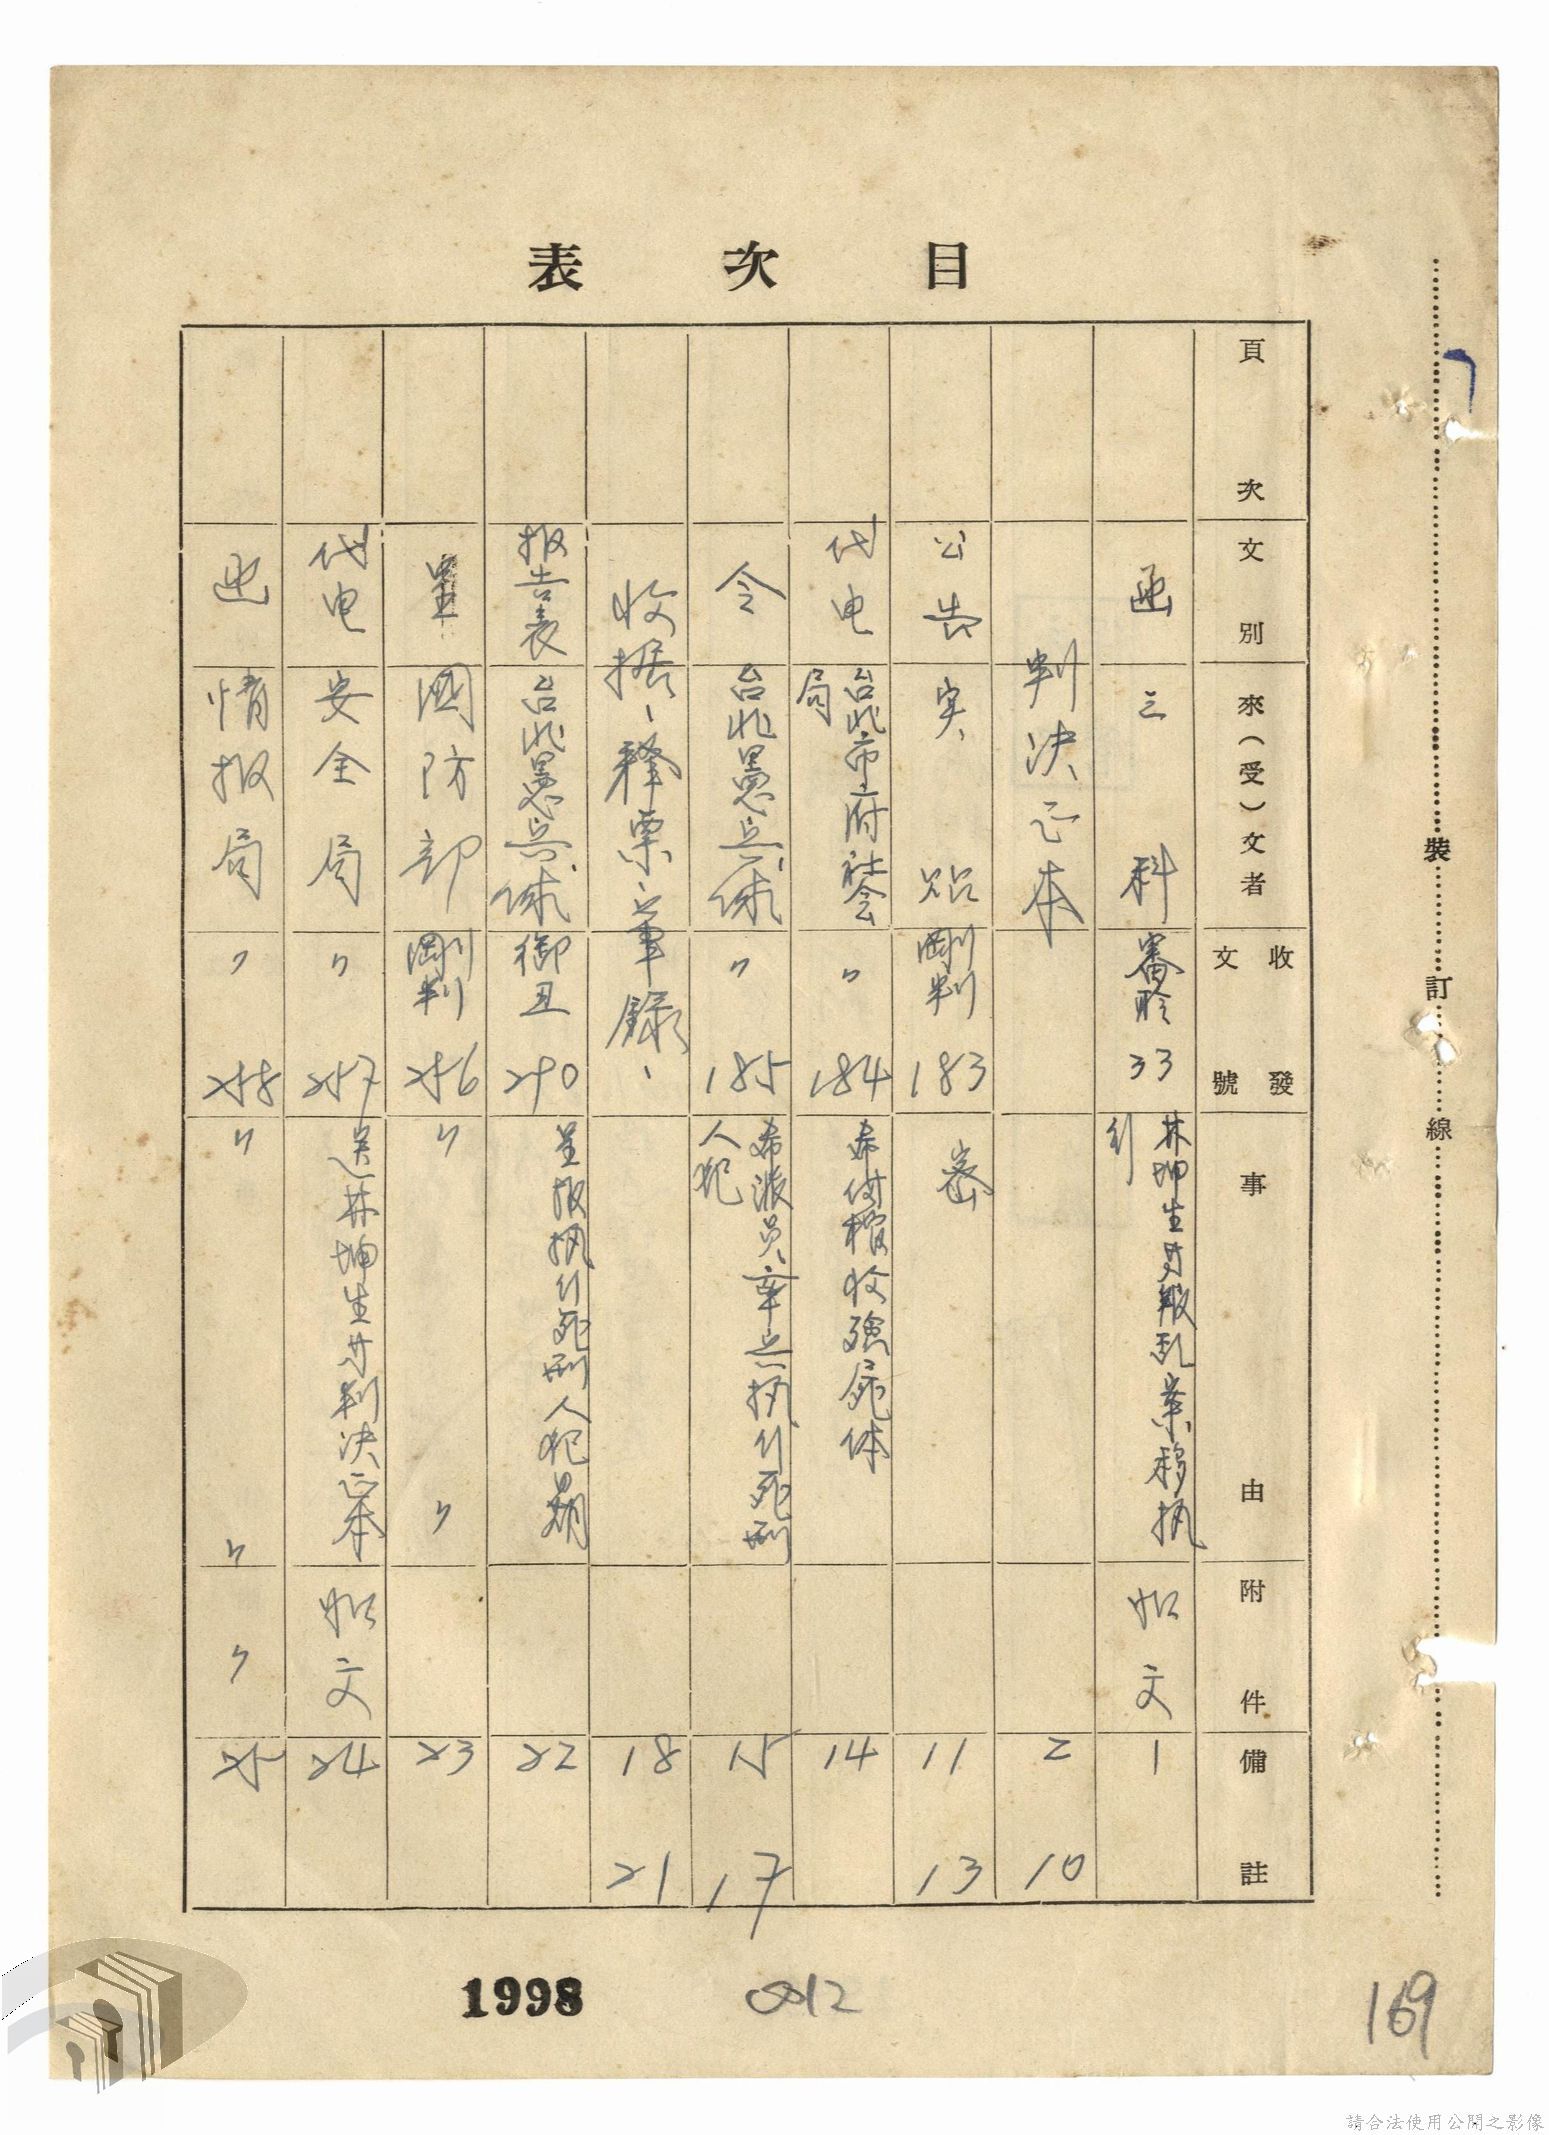 目次表
頁次
文別
來(受)文者
收發文號
事由
附件
備註
函
三科
審聆
33
林坤生等叛乱案移执
行
如文
1
判决正本
2
10
公告
实貼
剛判
183
密
11
13
代电
台北市府社会
局
〃
184
希備棺收殮屍体
14
令
台北憲兵隊
〃
185
希派員率兵执行死刑
人犯
15
17
收据、釋票、筆錄、
18
21
报告表
台北憲兵隊
御丑
290
呈报执行死刑人犯
22
呈
國防部
剛判
256
〃 〃
23
代电
安全局
〃
257
送林坤生等判決正本
如文
24
函
情报局
〃
258
〃 〃
〃
25
裝訂線
1998
0812
169
請合法使用公開之影像